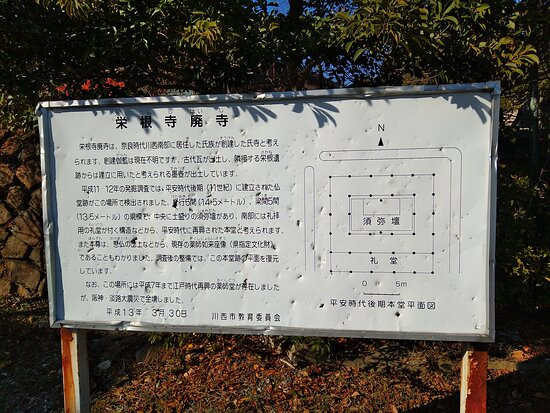 栄根寺廃寺
栄根寺廃寺は、奈良時代川西南部に居住した氏族が創建した氏寺と考え
られます。創建伽藍は現在不明ですが、古代瓦が出土し、隣接する栄根遺
跡からは建立に用いたと考えられる墨壺が出土しています。
平成11・12年の発掘調査では、平安時代後期(11世紀)に建立された仏
堂跡がこの場所で検出されました。桁行5間(14.5メートル)、梁間5間
(13.5メートル)の規模で、中央に土盛りの須弥壇があり、南部には礼拝
用の礼堂が付く構造などから、平安時代に再興された本堂と考えられます。
また本尊は、懸仏の出土などから、現存の薬師如来座像(県指定文化財)
であることもわかりました。調査後の整備では、この本堂跡の平面を復元
しています。
なお、この場所には平成7年まで江戸時代再興の薬師堂が存在しました
が、阪神・淡路大震災で全壊しました。
平成13年 3月30日 川西市教育委員会
N
須弥壇
礼堂
0 5m
平安時代後期本堂平面図